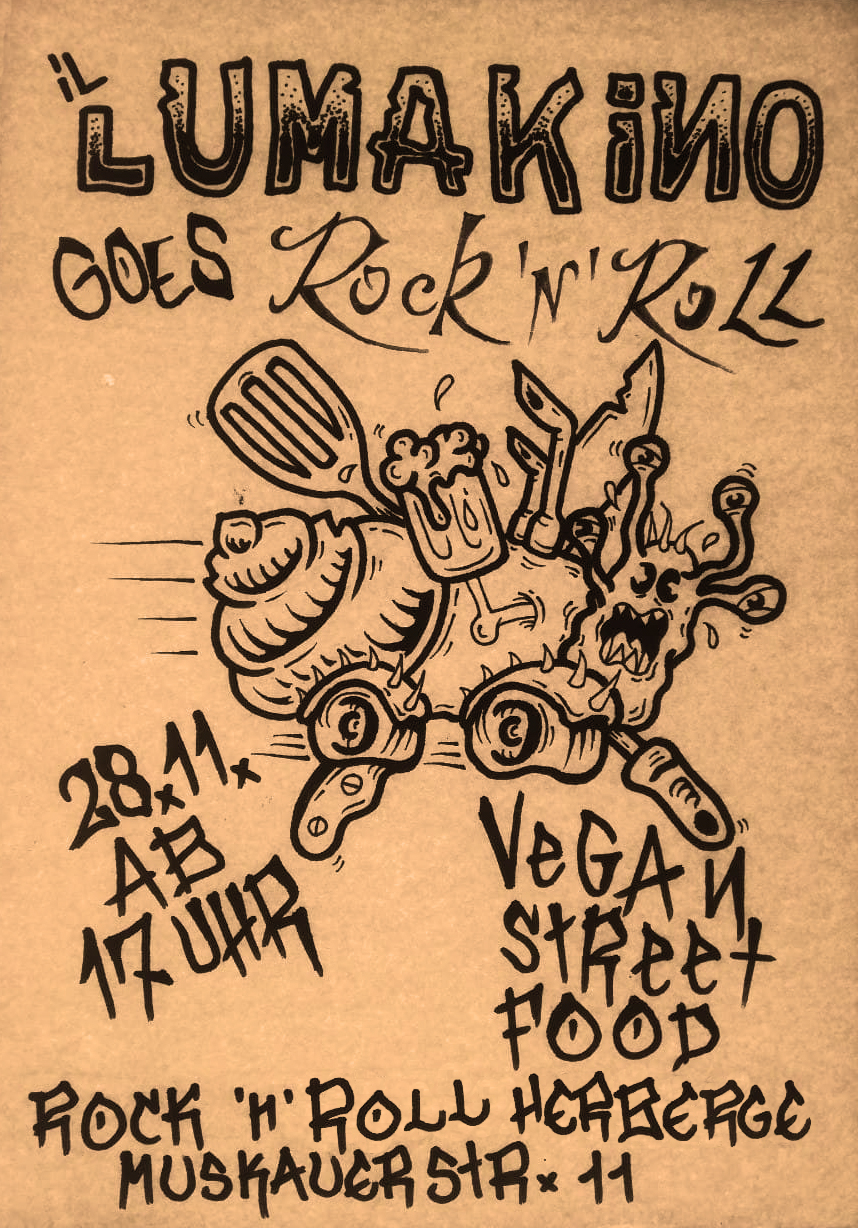 iL LUMAKiNO
GOES Rock 'N' RoLL
28.11.
AB
17 UHR
VeGAN
StReet
FOOD
ROCK 'N' ROLL HERBERGE
MUSKAUER StR. 11